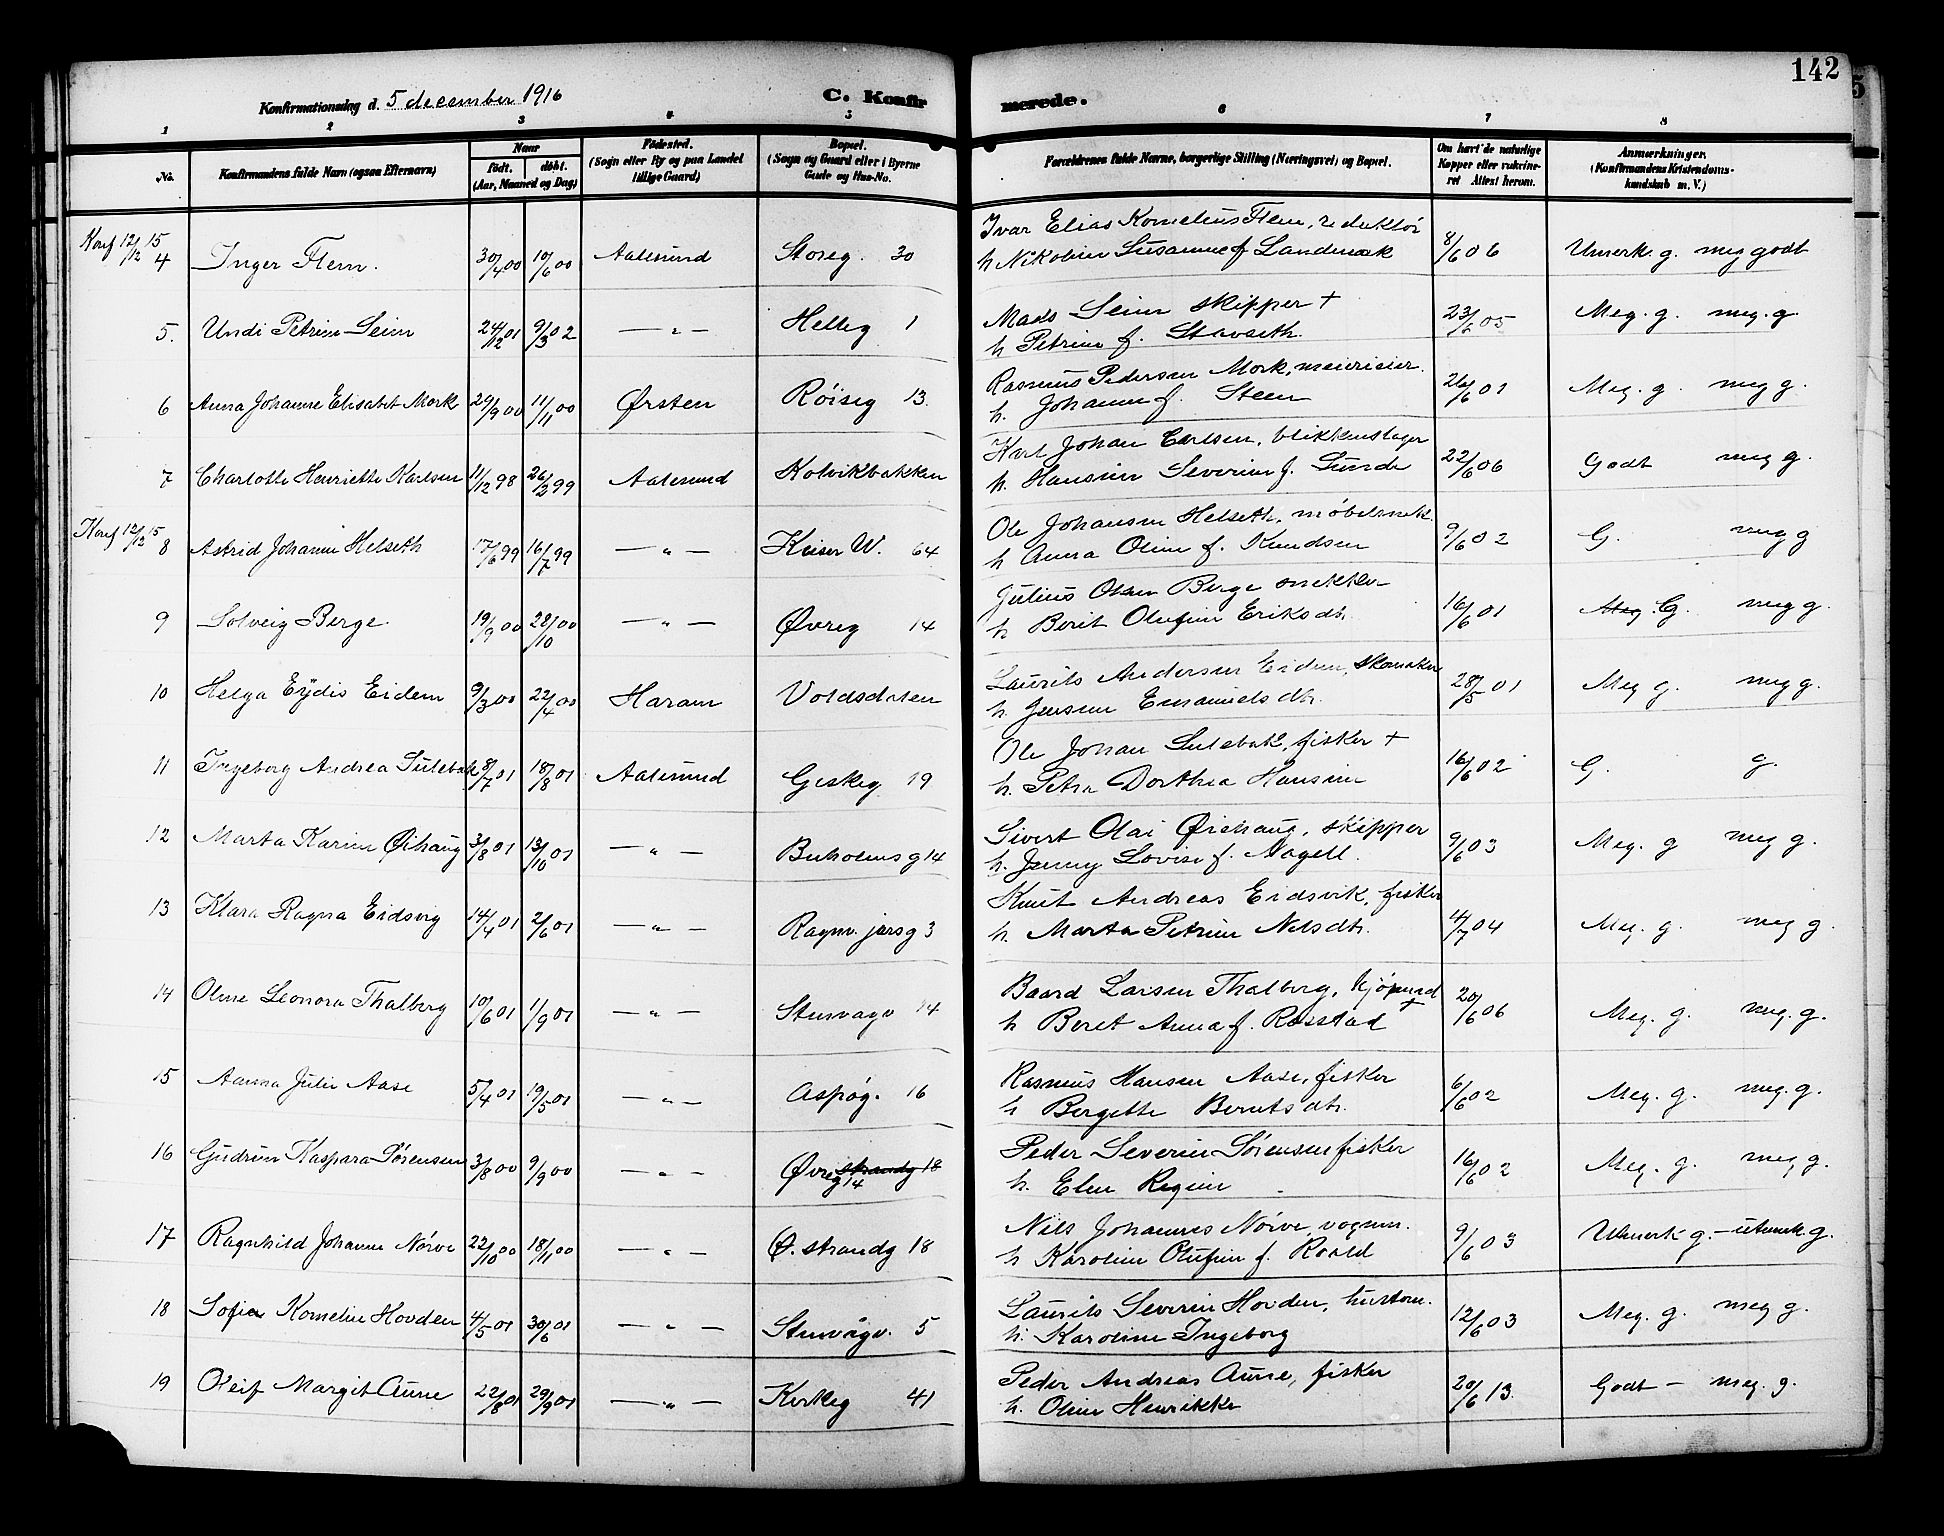 142
5
Konfirmationsdag d. 5 december 1916 C. Konfirmerede.
1 2 3 4 5 6 7 8
No. Konfirmandens fulde Navn (ogsaa Efternavn) Naar født. døbt. (Aar, Maaned og Dag) Fødested. (Sogn eller By og paa Landet tillige Gaard) Bopæl. (Sogn og Gaard eller i Byerne Gade og Hus-No. Forældrenes fulde Navne, borgerlige Stilling (Næringsvei) og Bopæl. Om havt de naturlige Kopper eller vakcineret Attest herom. Anmærkninger. (Konfirmandens Kristendomskundskab m. V.)
Konf 12/12 15
4 Inger Flem. 30/4 00 10/6 00 Aalesund Storg. 30 Ivar Elias Kornelius Flem, redaktør
h Nikoline Susanne f Landmark 8/6 06 Umerk. g. meg godt
5. Undi Petrine Seim 24/12 01 9/3 02 — " — Helleg 1 Mads Seim skipper +
h Petrine f. Stavseth. 23/6 05 Meg. g. meg. g.
6 Anna Johanne Elisabet Mork 29/9 00 11/11 00 Ørsten Røiseg 13. Rasmus Pedersen Mork, meierieier.
h. Johanne f. Steen 26/6 01 Meg. g meg g.
7 Charlotte Henriette Karlsen 11/12 98 26/2 99 Aalesund Kolvikbakken Karl Johan Carlsen, blikkenslager
h. Hansine Severine f. Sunde 22/6 06 Godt meg g.
Konf 12/12 15
8 Astrid Johanne Helseth 17/6 99 16/7 99 — " — Keiser W. 64 Ole Johansen Helseth, møbelsnekk.
h Anna Oline f. Knudsen 9/6 02 G. meg g
9 Solveig Berge. 19/9 00 28/10 00 — " — Øvreg 14 Julius Olsen Berge snekker
h Berit Olufine Eriksdtr. 16/6 01 Meg G. meg g.
10 Helga Eydis Eidem 9/3 00 22/4 00 Haram Voldsdalen Laurits Andersen Eidem, skomaker
h. Jensine Emanuelsdtr. 28/5 01 Meg g. meg g.
11 Ingeborg Andrea Sulebak 8/7 01 18/8 01 Aalesund Giskeg 19 Ole Johan Sulebak, fisker +
h. Petra Dorthea Hansine 16/6 02 G. g.
12 Marta Karine Øihaug 3/8 01 13/10 01 — " — Buholmsg 14 Sivert Olai Øiehaug, skipper
h. Jenny Lovise f. Nagell. 9/6 03 Meg. g meg g.
13 Klara Ragna Eidsvig 14/4 01 2/6 01 — " — Ragnv. jarsg 3 Knut Andreas Eidsvik, fisker
h. Marta Petrine Nilsdtr. 4/7 04 Meg. g. meg g.
14 Oline Leonora Thalberg 10/6 01 1/9 01 — " — Stenvaagv 14 Baard Larsen Thalberg, kjøpmand +
h Beret Anna f. Rosstad 20/6 06 Meg. g. meg. g.
15 Aanna Julie Aase 5/4 01 19/5 01 — " — Aspøg. 16 Rasmus Hansen Aase, fisker
h Bergette Berntsdtr. 6/6 02 Meg. g. meg. g.
16 Gudrun Kaspara Sørensen 3/8 00 9/9 00 — " — Øvreg strandg 18 14 Peder Severin Sørensen fisker
h. Elen Regine 16/6 02 Meg. g. meg g.
17 Ragnhild Johanne Nørve 22/10 00 18/11 00 — " — Ø. strandg 18 Nils Johannes Nørve, vognm.
h Karoline Olufine f. Roald 9/6 03 Utmerk g. — utmerk g.
18 Sofie Kornelie Hovden 4/5 01 30/6 01 — " — Stenvågv. 5 Laurits Severin Hovden, hustom.
h. Karoline Ingeborg 12/6 03 Meg. g. meg g.
19 Oleif Margit Aurre 22/8 01 29/9 01 — " — Kirkeg 41 Peder Andreas Aurre, fisker
h. Oline Henrikke 20/6 13. Godt — meg. g.